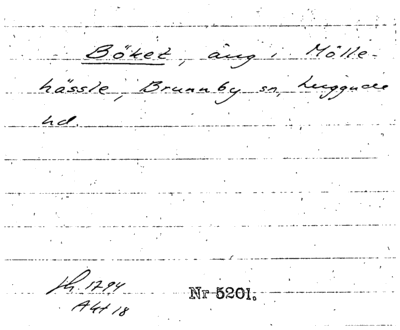 Böket, äng i Mölle-
hässle, Brunnby sn, Luggude
hd.
1794
Akt 18
Nr 5201.